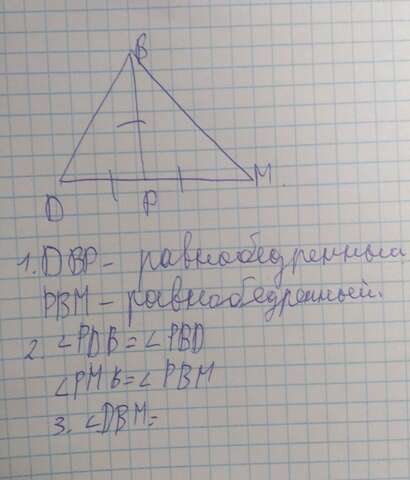 B
D P M
1. DBP - равнобедренный
PBM - равнобедренный.
2. ∠PDB = ∠PBD
∠PMB = ∠PBM
3. ∠DBM =